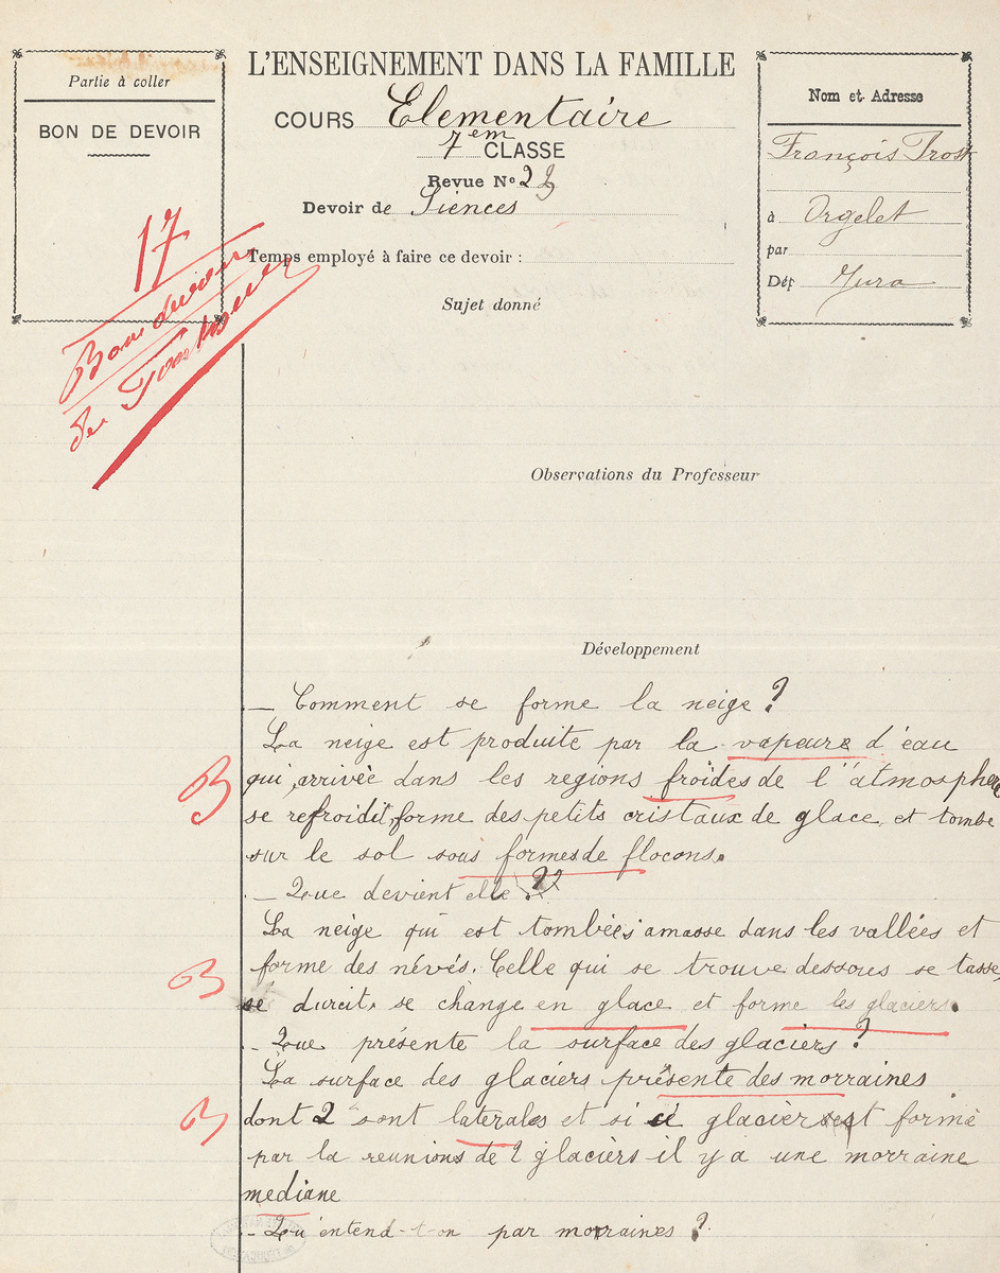 Partie à coller
BON DE DEVOIR
17
Bon devoir
L'ENSEIGNEMENT DANS LA FAMILLE
COURS Elementaire
7em CLASSE
Revue No 23
Devoir de Siences
Temps employé à faire ce devoir :
Sujet donné
Nom et Adresse
François Prost
à Orgelet
par
Dép Jura
Observations du Professeur
Développement
— Comment se forme la neige ?
La neige est produite par la vapeure d'eau
qui, arrivée dans les regions froides de l'atmosphere
se refroidit, forme des petits cristaux de glace, et tombe
sur le sol sous formes de flocons.
— Que devient elle ?
La neige qui est tombée s'amasse dans les vallées et
forme des névés. Celle qui se trouve dessous se tasse,
se durcit, se change en glace et forme les glaciers.
- Que présente la surface des glaciers ?
La surface des glaciers présente des morraines
dont 2 sont laterales et si ce glacier est formé
par la reunions de 2 glaciers il y a une morraine
mediane
- Qu'entend-t-on par morraines ?
B
B
B